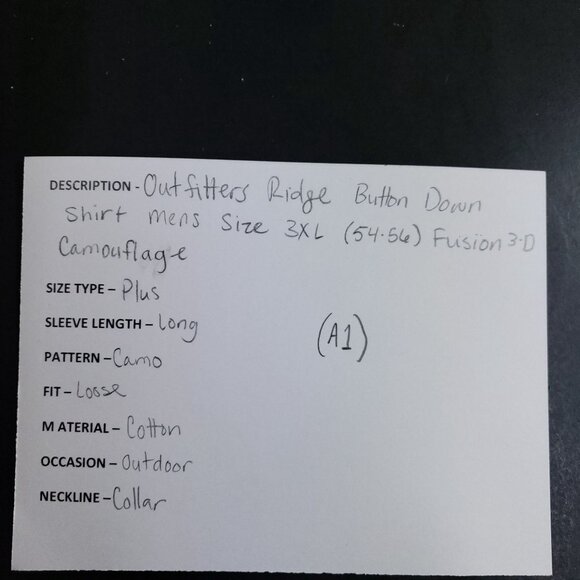 DESCRIPTION - Outfitters Ridge Button Down
Shirt mens Size 3XL (54-56) Fusion 3-D
Camouflage
SIZE TYPE – Plus
SLEEVE LENGTH – Long
(A1)
PATTERN – Camo
FIT – Losse
M ATERIAL – Cotton
OCCASION – Outdoor
NECKLINE – Collar